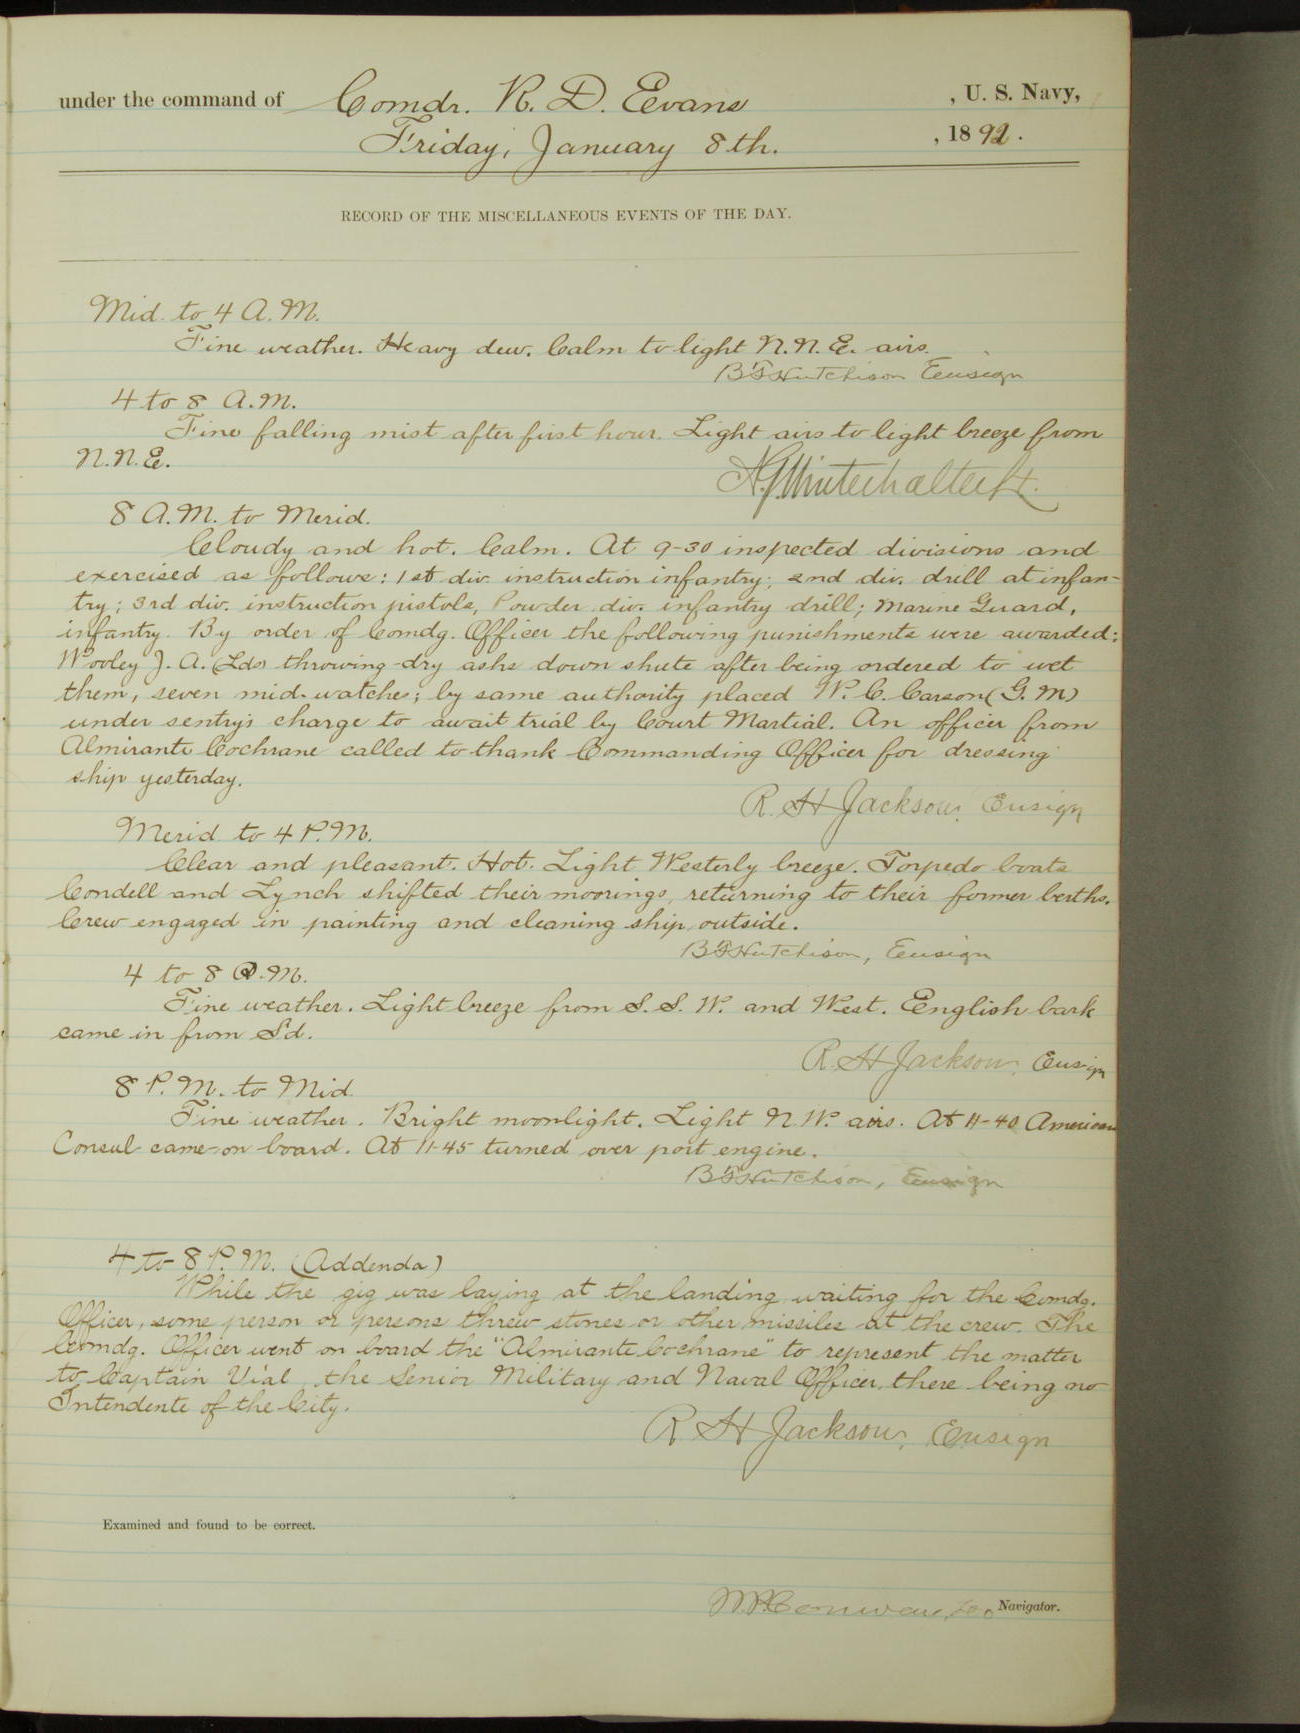 under the command of Comdr. R. D. Evans , U. S. Navy,
Friday, January 8th. , 1892.
RECORD OF THE MISCELLANEOUS EVENTS OF THE DAY.
Mid. to 4 A.M.
Fine weather. Heavy dew. Calm to light N.N.E. airs.
B F Hutchison Ensign
4 to 8 A.M.
Fine falling mist after first hour. Light airs to light breeze from
N.N.E.
A.G. Winterhalter Lt.
8 A.M. to Merid.
Cloudy and hot. Calm. At 9-30 inspected divisions and
exercised as follows: 1st div. instruction infantry; 2nd div. drill at infan-
try; 3rd div. instruction pistols, Powder div. infantry drill; Marine Guard,
infantry. By order of Comdg. Officer the following punishments were awarded:
Wooley J. A. (Lds) throwing dry ashs down shute after being ordered to wet
them, seven mid-watches; by same authority placed W. C. Carson (G. M)
under sentry's charge to await trial by Court Martial. An officer from
Almirante Cochrane called to thank Commanding Officer for dressing
ship yesterday.
R. H Jackson, Ensign
Merid. to 4 P.M.
Clear and pleasant. Hot. Light Westerly breeze. Torpedo boats
Condell and Lynch shifted their moorings, returning to their former berths.
Crew engaged in painting and cleaning ship outside.
B F Hutchison, Ensign
4 to 8 P.M.
Fine weather. Light breeze from S. S. W. and West. English bark
came in from S'd.
R. H Jackson, Ensign
8 P. M. to Mid.
Fine weather. Bright moonlight. Light N.W. airs. At 11-40 American
Consul came on board. At 11-45 turned over port engine.
B F Hutchison, Ensign
4 to 8 P.M. (Addenda)
While the gig was laying at the landing waiting for the Comdg.
Officer, some person or persons threw stones or other missiles at the crew. The
Comdg. Officer went on board the "Almirante Cochrane" to represent the matter
to Captain Vial, the Senior Military and Naval Officer, there being no
Intendente of the City.
R H Jackson, Ensign
Examined and found to be correct.
Navigator.